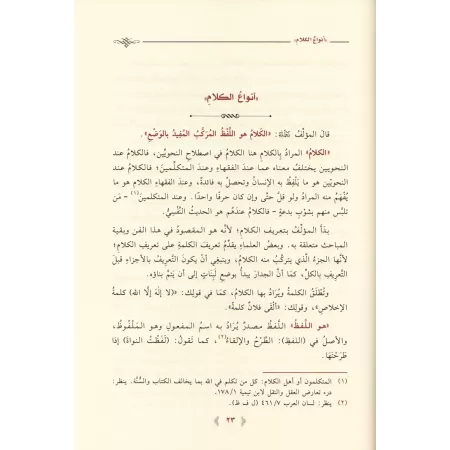 «أنواعُ الكلام»
«أنواعُ الكلامِ»
قالَ المؤلِّفُ ﷺ: «الكَلامُ هو اللَّفْظُ المُرَكَّبُ المُفِيدُ بالوَضْعِ».
«الكلامُ» المرادُ بالكلامِ هنا الكلامُ في اصطلاحِ النحويِّين، فالكلامُ عند
النحويين يختلفُ معناه عما عندَ الفقهاءِ وعند المتكلِّمين؛ فالكلامُ عند
النحويين هو ما يَلْفِظُ به الإنسانُ وتحصل به فائدةٌ، وعندَ الفقهاءِ الكلام هو ما
يُفْهَمُ منه المرادُ ولو قلَّ حتَّى وإن كان حرفًا واحدًا. وعند المتكلمين(١) - مَن
تلبَّس منهم بشَوْبِ بدعةٍ - فالكلامُ عندَهُم هو الحديثُ النَّفْسِيُّ.
بدأ المؤلِّفُ بتعريف الكلامِ؛ لأنَّه هو المقصودُ في هذا الفن وبقية
المباحث متعلقة به. وبعضُ العلماءِ يقدِّمُ تعريفَ الكلمةِ على تعريفِ الكلامِ؛
لأنَّها الجزءُ الَّذي يتركَّبُ منه الكلامُ، وينبغي أنْ يكونَ التَّعريفُ بالأجزاءِ قبلَ
التَّعريفِ بالكلِّ، كمَا أنَّ الجدارَ يبدأُ بوضعِ لَبِنَاتٍ إلى أن يَتِمَّ بناؤه.
وتُطْلَقُ الكلمةُ ويُرَادُ بها الكلامُ، كمَا في قولِك: «(لا إلَهَ إلَّا الله) كلمةُ
الإخلاصِ»، وقولِك: «أَلْقَى فلانٌ كلمةً».
«هو اللَّفظُ» اللَّفظُ مصدرٌ يُرَادُ به اسمُ المفعولِ وهو المَلْفُوظُ،
والأصلُ في (اللفظِ): الطَّرْحُ والإلقاءُ(٢)، كما تَقولُ: (لَفَظْتُ النواةَ) إذا
طَرَحْتَهَا.
(١) المتكلمون أو أهل الكلام: كل من تكلم في الله بما يخالف الكتاب والسُّنَّة. ينظر:
درء تعارض العقل والنقل لابن تيمية ١٧٨/١.
(٢) ينظر: لسان العرب ٤٦١/٧ (ل ف ظ).
٢٣